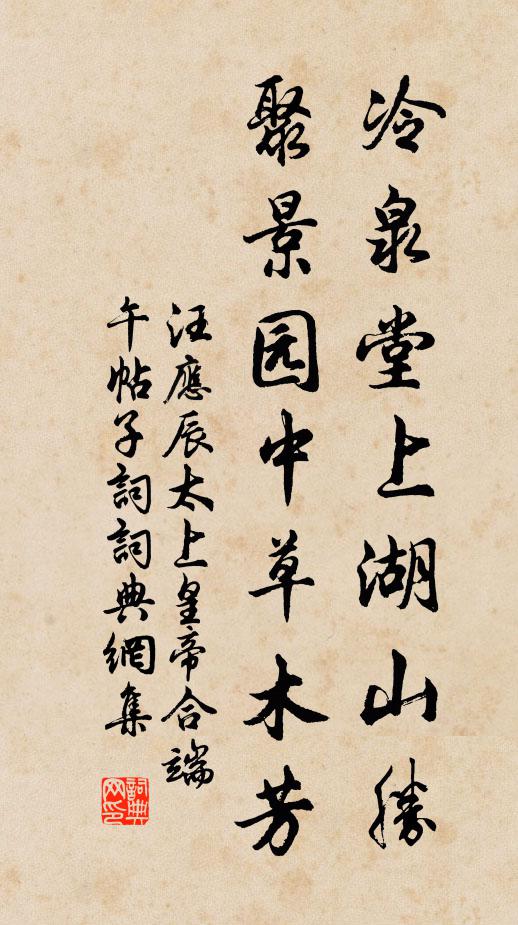 冷泉堂上湖山勝
聚景园中草木芳
汪應辰太上皇帝合端
午帖子詞詞典網集
詞典
网印